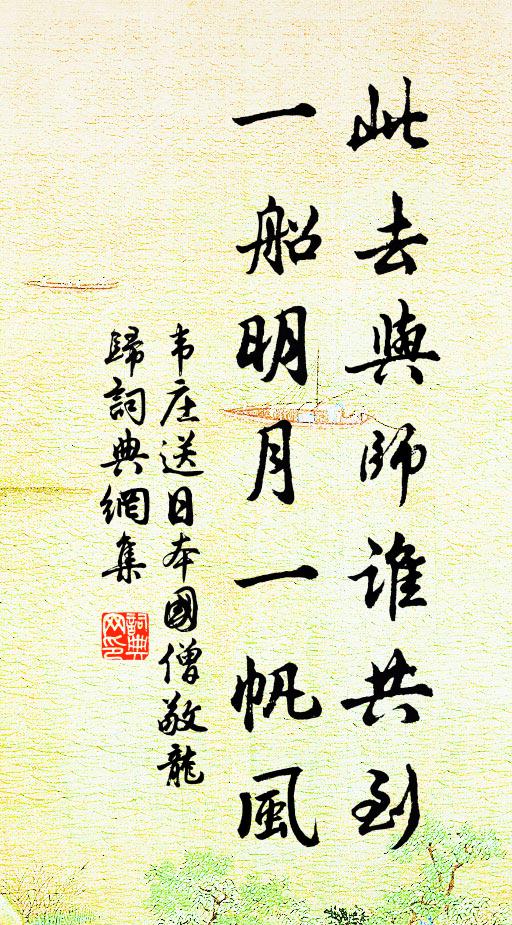 此去與師誰共到
一船明月一帆風
韦庄送日本國僧敬龍
歸詞典網集
詞典网印